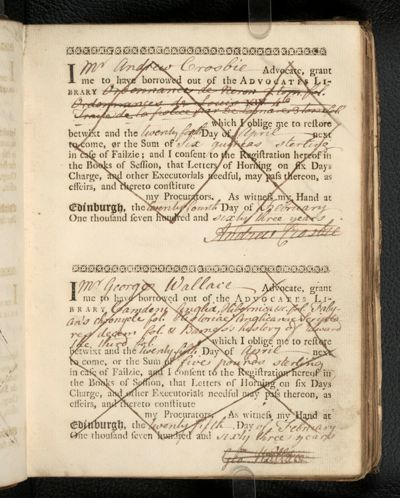 I Mr Andrew Crosbie Advocate, grant
me to have borrowed out of the ADVOCATES LI-
BRARY Ordonnances de
Ordonnances de Louis XIV 4to
Traité de la Police par
which I oblige me to restore
betwixt and the twenty fol Day of April next
to come, or the Sum of Six guineas sterling
in case of Failzie; and I consent to the Registration hereof in
the Books of Session, that Letters of Horning on six Days
Charge, and other Executorials needful, may pass thereon, as
effeirs, and thereto constitute
my Procurators. As witness my Hand at
Edinburgh, the twenty fourth Day of February
One thousand seven hundred and sixty three years
Andrew Crosbie
I Mr George Wallace Advocate, grant
me to have borrowed out of the ADVOCATES LI-
BRARY Camdens Anglia, Hibernia &c fol. Faby-
an's chronycle fol. Historiae Anglicanae Scripto
res decem fol. & Barnes's history of Edward
the third fol. which I oblige me to restore
betwixt and the twenty fifth Day of April next
to come, or the Sum of five pounds sterling
in case of Failzie, and I consent to the Registration hereof in
the Books of Session, that Letters of Horning on six Days
Charge, and other Executorials needful may pass thereon, as
effeirs, and thereto constitute
my Procurators. As witness my Hand at
Edinburgh, the twenty fifth Day of February
One thousand seven hundred and sixty three years
Geo: Wallace